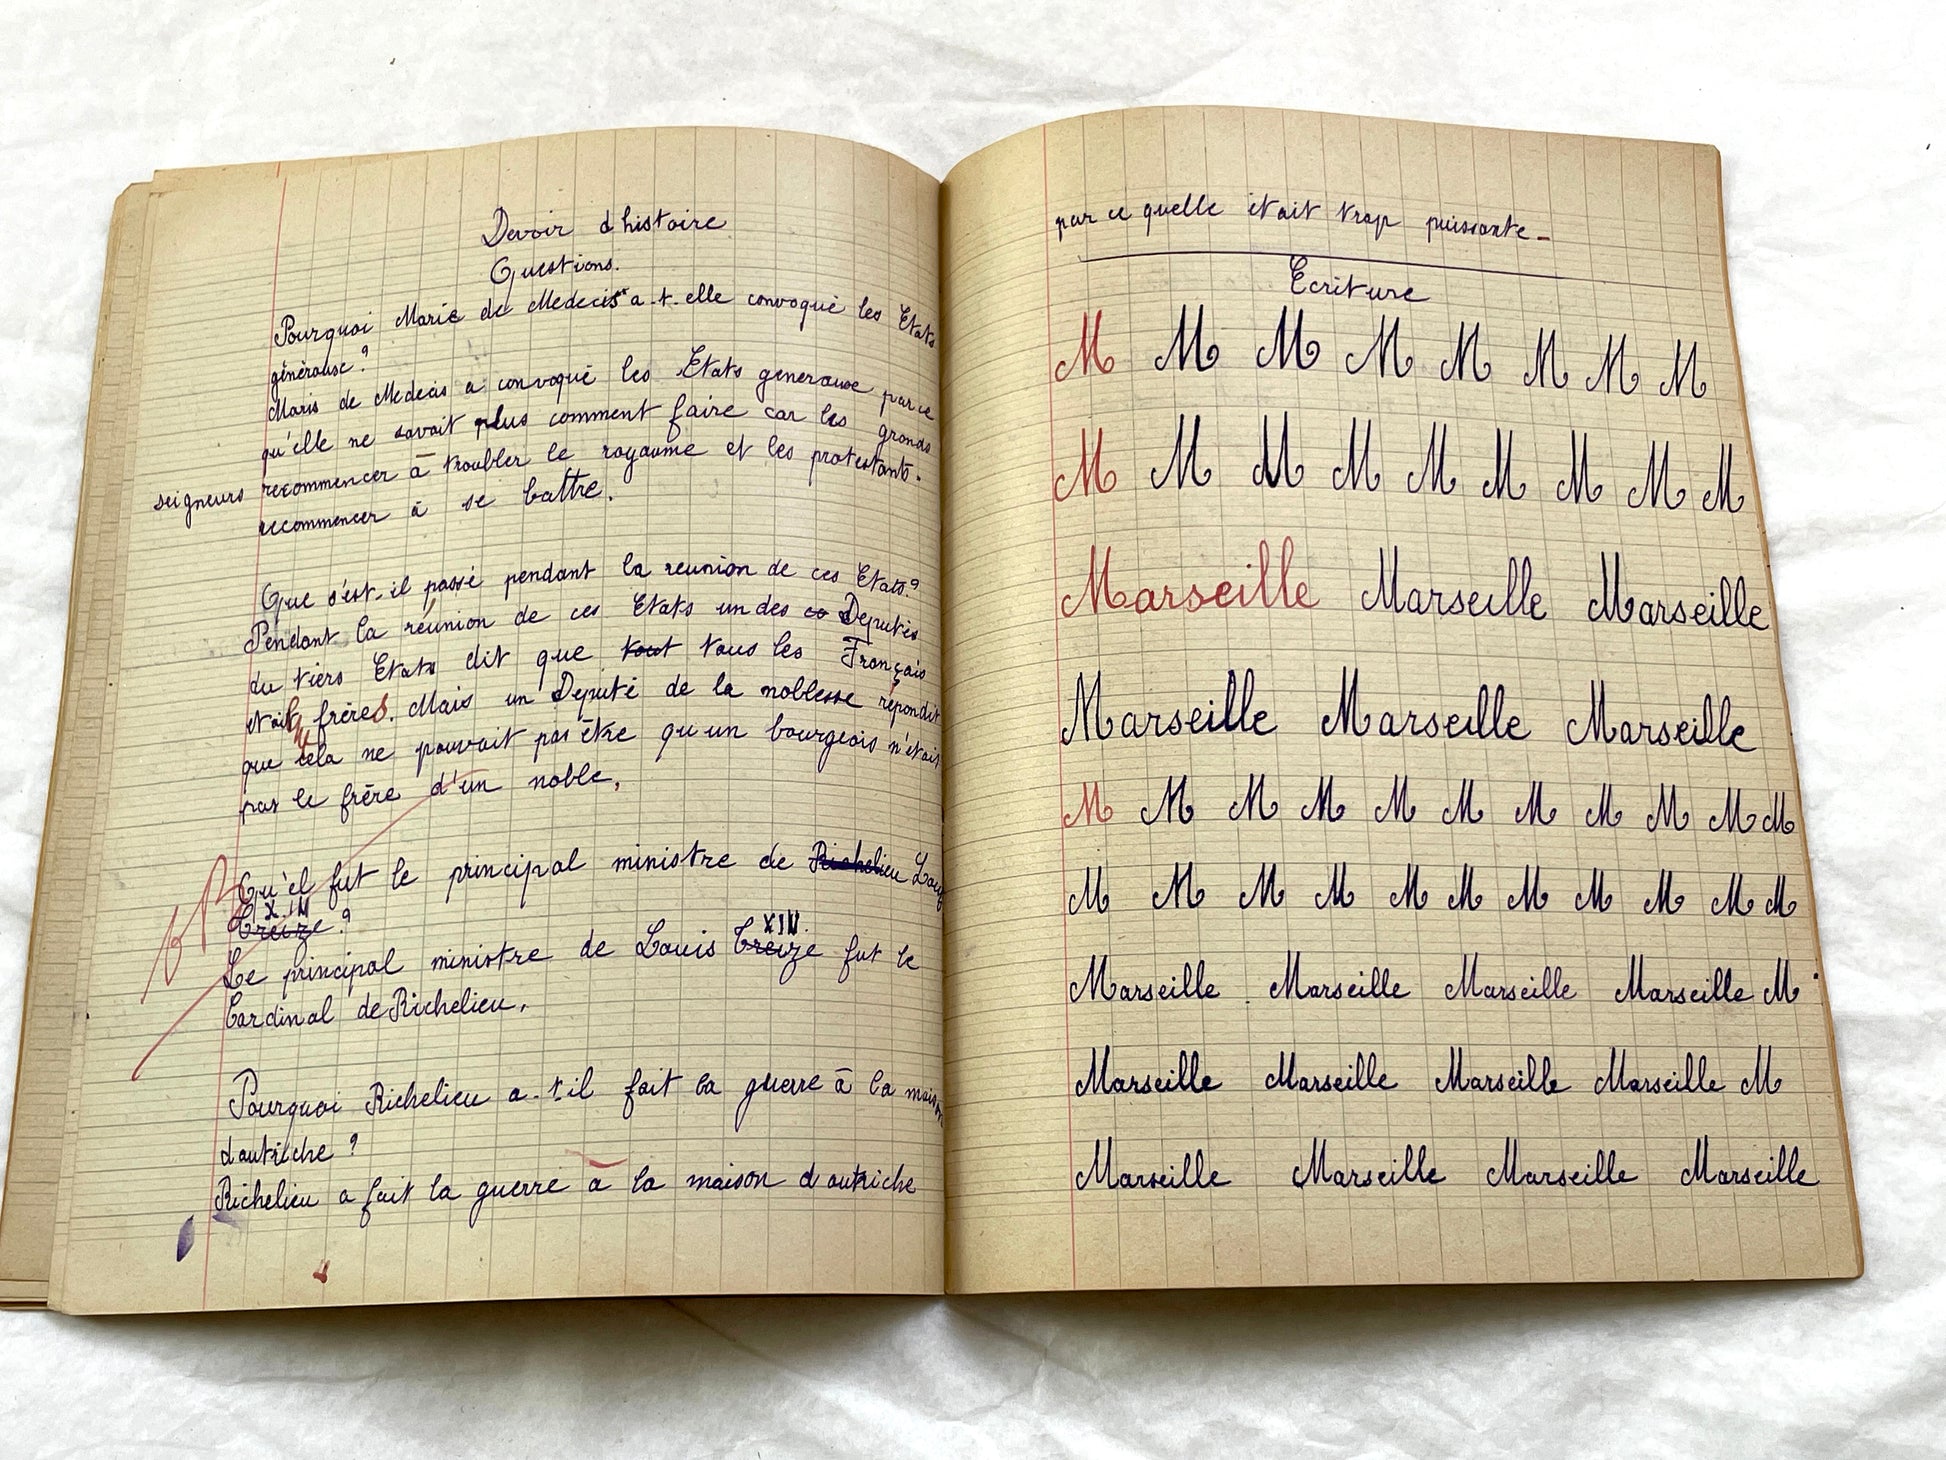 Devoir d histoire
Questions.
Pourquoi Marie de Medecis a-t-elle convoqué les Etats
généraux ?
Maris de Medecis a convoqué les Etats generaux parce
qu'elle ne savait plus comment faire car les grands
seigneurs recommencer à troubler le royaume et les protestants.
recommencer à se battre.
Que s'est-il passé pendant la reunion de ces Etats ?
Pendant la réunion de ces Etats un des co Deputés
du tiers Etats dit que tout tous les Français
était frères. Mais un Deputé de la noblesse répondit
que cela ne pouvait pas être qu un bourgeois n'était
pas le frère d'un noble.
Qu'el fut le principal ministre de Richelieu Louis
XIII
Treize ?
XIII.
Le principal ministre de Louis Treize fut le
Cardinal de Richelieu.
Pourquoi Richelieu a-t-il fait la guerre à la maison
d autriche ?
Richelieu a fait la guerre à la maison d autriche
par ce quelle était trop puissante -
Ecriture
M M M M M M M M
M M M M M M M M M
Marseille Marseille Marseille
Marseille Marseille Marseille
M M M M M M M M M M M
M M M M M M M M M M M
Marseille Marseille Marseille Marseille M
Marseille Marseille Marseille Marseille M
Marseille Marseille Marseille Marseille